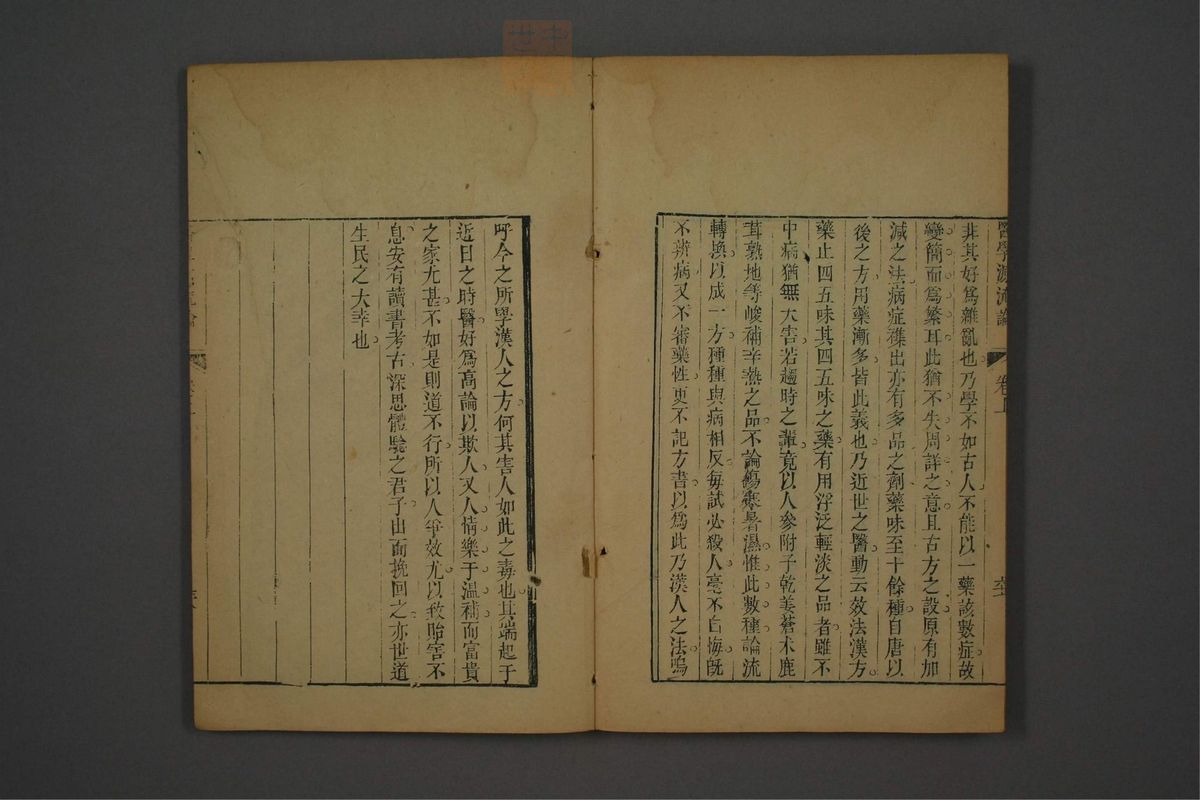 醫學源流論 卷上
非其好爲雜亂也乃學不如古人不能以一藥該數症故
變簡而爲繁耳此猶不失周詳之意且古方之設原有加
減之法病症襍出亦有多品之劑藥味至十餘種自唐以
後之方用藥漸多皆此義也乃近世之醫動云效法漢方
藥止四五味其四五味之藥有用浮泛輕淡之品者雖不
中病猶無大害若趨時之輩竟以人參附子乾姜蒼朮鹿
茸熟地等峻補辛熱之品不論傷寒暑濕惟此數種論流
轉換以成一方種種與病相反每試必殺人毫不自悔旣
不辨病又不審藥性更不記方書以爲此乃漢人之法嗚
呼今之所學漢人之方何其害人如此之毒也其端起于
近日之時醫好爲高論以欺人又人情樂于溫補而富貴
之家尤甚不如是則道不行所以人爭效尤以致貽害不
息安有讀書考古深思體驗之君子出而挽回之亦世道
生民之大幸也